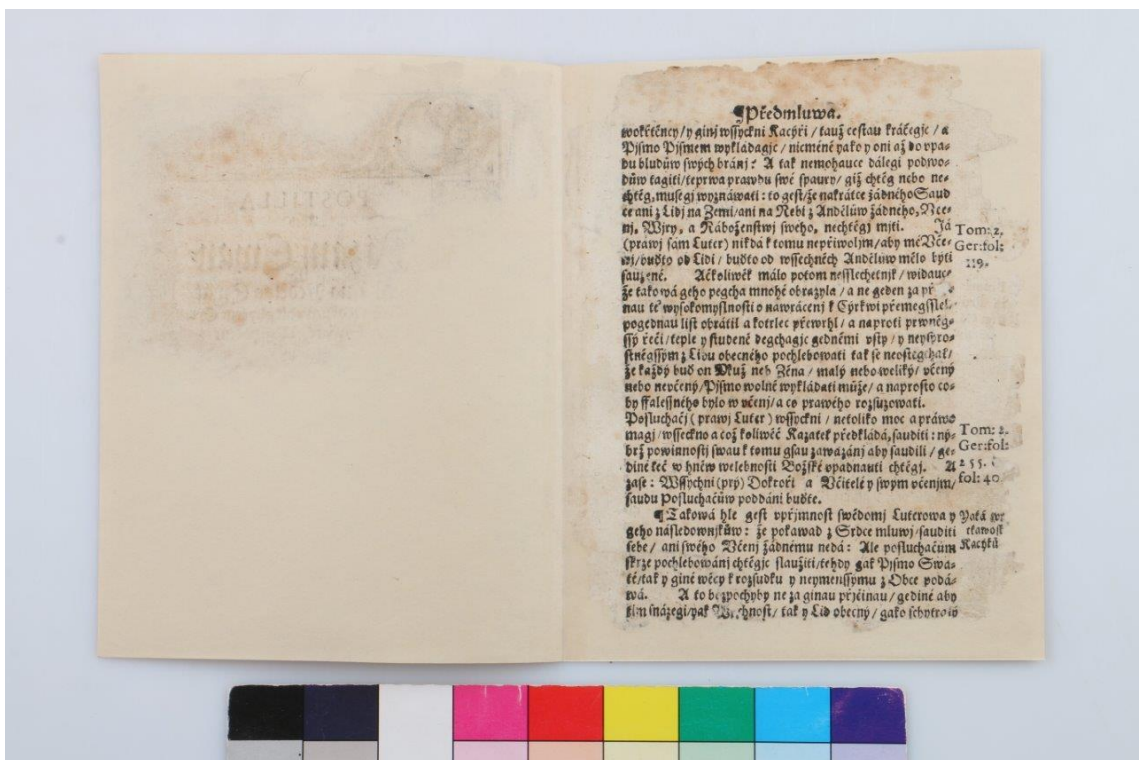 POSTILLA
¶Předmluwa.
wokřtěncy / y ginj wssyckni Kacyři / tauž cestau kráčegjc / a
Pjsmo Pjsmem wykládagjc / nicméně yako y oni až do vpa-
du bludůw swých bránj: A tak nemohauce dálegi podwo-
důw tagiti / teprwa prawdu swé spaury / giž chtěg nebo ne-
chtěg, musegj wyznáwati: to gest / že nakrátce žádného Saud
ce ani z Lidj na Zemi / ani na Nebi z Andělůw žádného, Vče-
nj, Wjry, a Náboženstwj swého, nechtěgj mjti. Já
(prawj sám Luter) nikdá k tomu nepřiwoljm / aby mé Vče-
nj / buďto od Lidi / buďto od wssechněch Andělůw mělo býti
sauzené. Ačkoliwěk málo potom nesslechetnjk / widauce
že taková geho pegcha mnohé obrazyla / a ne geden za
nau té wysokomyslnosti o nawrácenj k Cýrkwi přemegsslel-
pogednau list obrátil a kotrlec přewrhl / a naproti prwněg-
ssý řeči / teple y studeně degchagjc gedněmi vsty / y neysyro-
stněgssým z Lidu obecného pochlebowati tak se neostegchal /
že každý buď on Muž neb Žéna / malý nebo weliký / včený
nebo nevčený / Pjsmo wolně wykládati může / a naprosto co-
by ffalessného bylo w včenj / a co prawého rozsuzowati.
Posluchačj (prawj Luter) wssyckni / netoliko moc a práwo
magj / wssecko a což koliwěč Kazatel předkládá, sauditi: ný-
brž powinnostj swau k tomu gsau zawázánj aby saudili / ge-
diné leč w hněw welebnosti Božské vpadnauti chtěgj. A
zase: Wssychni (prý) Doktoři a Včitelé y swým včenjm /
saudu Posluchačůw poddáni buďte.
¶Takowá hle gest vpřjmnost swědomj Luterowa y
geho následownjkůw: že pokawad z Srdce mluwj / sauditi
sebe / ani swého Včenj žádnému nedá: Ale posluchačům
skrze pochlebowánj chtěgjc slaužiti / tehdy gak Pjsmo Swa-
té / tak y giné wěcy k rozsudku y neymenssýmu z Obce podá-
wá. A to bezpochyby ne za ginau přjčinau / gediné aby
tjm snázegi / yak Wrchnost / tak y Lid obecný / gako schytralý
Tom: 2.
Ger: fol:
119.
Tom: 2.
Ger: fol:
255.
fol: 40
Kacyřů